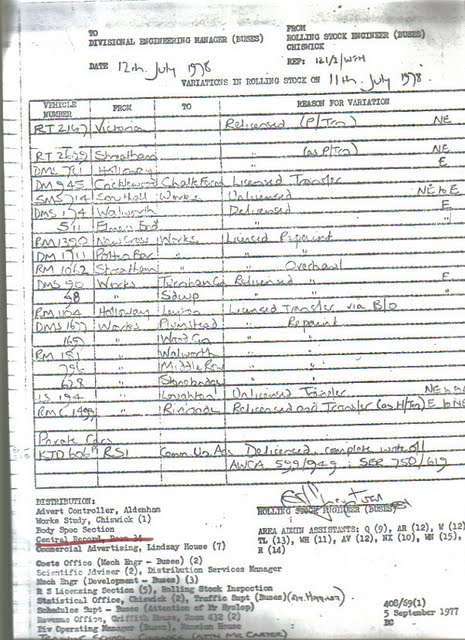 TO
DIVISIONAL ENGINEERING MANAGER (BUSES)
FROM
ROLLING STOCK ENGINEER (BUSES)
CHISWICK
REF: 121/2/WFH
DATE 12th July 1978
VARIATIONS IN ROLLING STOCK ON 11th July 1978.
VEHICLE NUMBER FROM TO REASON FOR VARIATION
RT 2147 Victoria Relicensed (P/Trn) NE
RT 2699 Streatham " (as P/Trn) NE
DMS 781 Holloway " E
DM 945 Cricklewood Chalk Farm Licensed Transfer
SMS 714 Southall Works Unlicensed NE to E
DMS 174 Walworth Delicensed E
511 Elmers End " "
RM 1390 New Cross Works Licensed Repaint
DM 1711 Potters Bar " " "
RM 1062 Streatham " " Overhaul
DMS 90 Works Turnham Gn Relicensed E
58 " Sdwp " "
RM 1104 Holloway Leyton Licensed Transfer via B/O
DMS 167 Works Plumstead " Repaint
169 " Wood Gn " "
RM 181 " Walworth " "
796 " Middle Row " "
628 " Stonebridge " "
LS 194 " Loughton Unlicensed Transfer
RMC 1499 " Riverside Relicensed and Transfer (as H/Trn) E to NE
Private Cars
KJD 606 RS1 Comm. Un. Ass Delicensed, complete write off
AWCA 599/949 : SER 750/619
DISTRIBUTION:
Advert Controller, Aldenham
Works Study, Chiswick (1)
Body Spec Section
Central Record, Room 34
Commercial Advertising, Lindsay House (7)
Costs Office (Mech Engr - Buses) (2)
Scientific Adviser (2), Distribution Services Manager
Mech Engr (Development - Buses) (3)
R S Licensing Section (5), Rolling Stock Inspection
Statistical Office, Chiswick (2), Traffic Supt (Buses)
Schedules Supt - Buses (Attention of Mr Hyslop)
Revenue Office, Griffith House, Room 432 (2)
Div Operating Manager (Buses), Mansion House
ROLLING STOCK ENGINEER (BUSES)
AREA ADMIN ASSISTANTS: Q (9), AR (12), W (12)
TL (13), WH (11), AV (12), NX (10), WN (15),
R (14)
408/69(1)
5 September 1977
DG